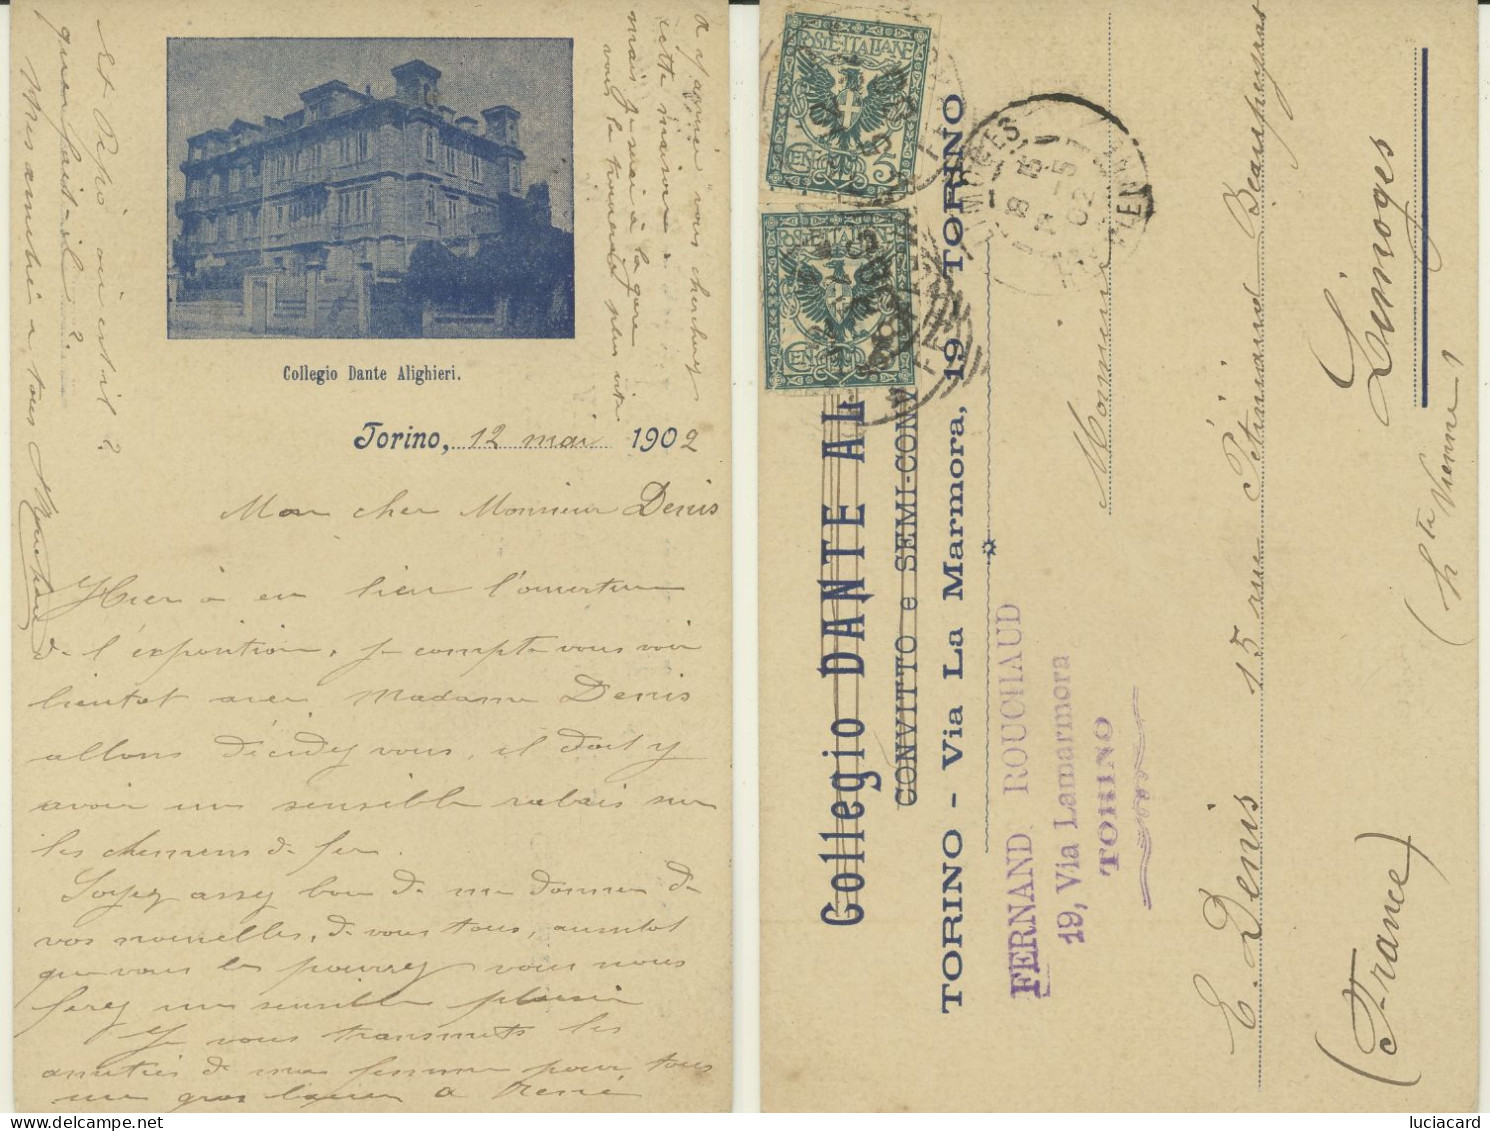 Collegio Dante Alighieri.
Torino, 12 mai 1902
Mon cher Monsieur Denis
Hier a eu lieu l'ouverture
de l'exposition, je compte vous voir
bientot avec Madame Denis
allons décidez vous, il doit y
avoir un sensible rabais sur
les chemins de fer.
Soyez assez bon de me donner de
vos nouvelles, de vous tous, aussitot
que vous le pourrez vous nous
ferez un sensible plaisir
Je vous transmets les
amitiés de ma femme pour tous
un gros baiser a René
Et Pépé où est il ?
que fait-il ?
Mes amitiés à tous
a
vous cherchez
cette missive
mais je serai à la gare
vous la trouverez
POSTE ITALIANE
5
CENT
POSTE ITALIANE
CENT
LIMOGES
15
5
02
Collegio DANTE AL
CONVITTO e SEMI-CONV
TORINO - Via La Marmora, 19 TORINO
FERNAND ROUCHAUD
19, Via Lamarmora
TORINO
Monsieur
E. Denis 15 rue Pétiniaud Beaupeyrat
Limoges
(Hte Vienne)
(France)